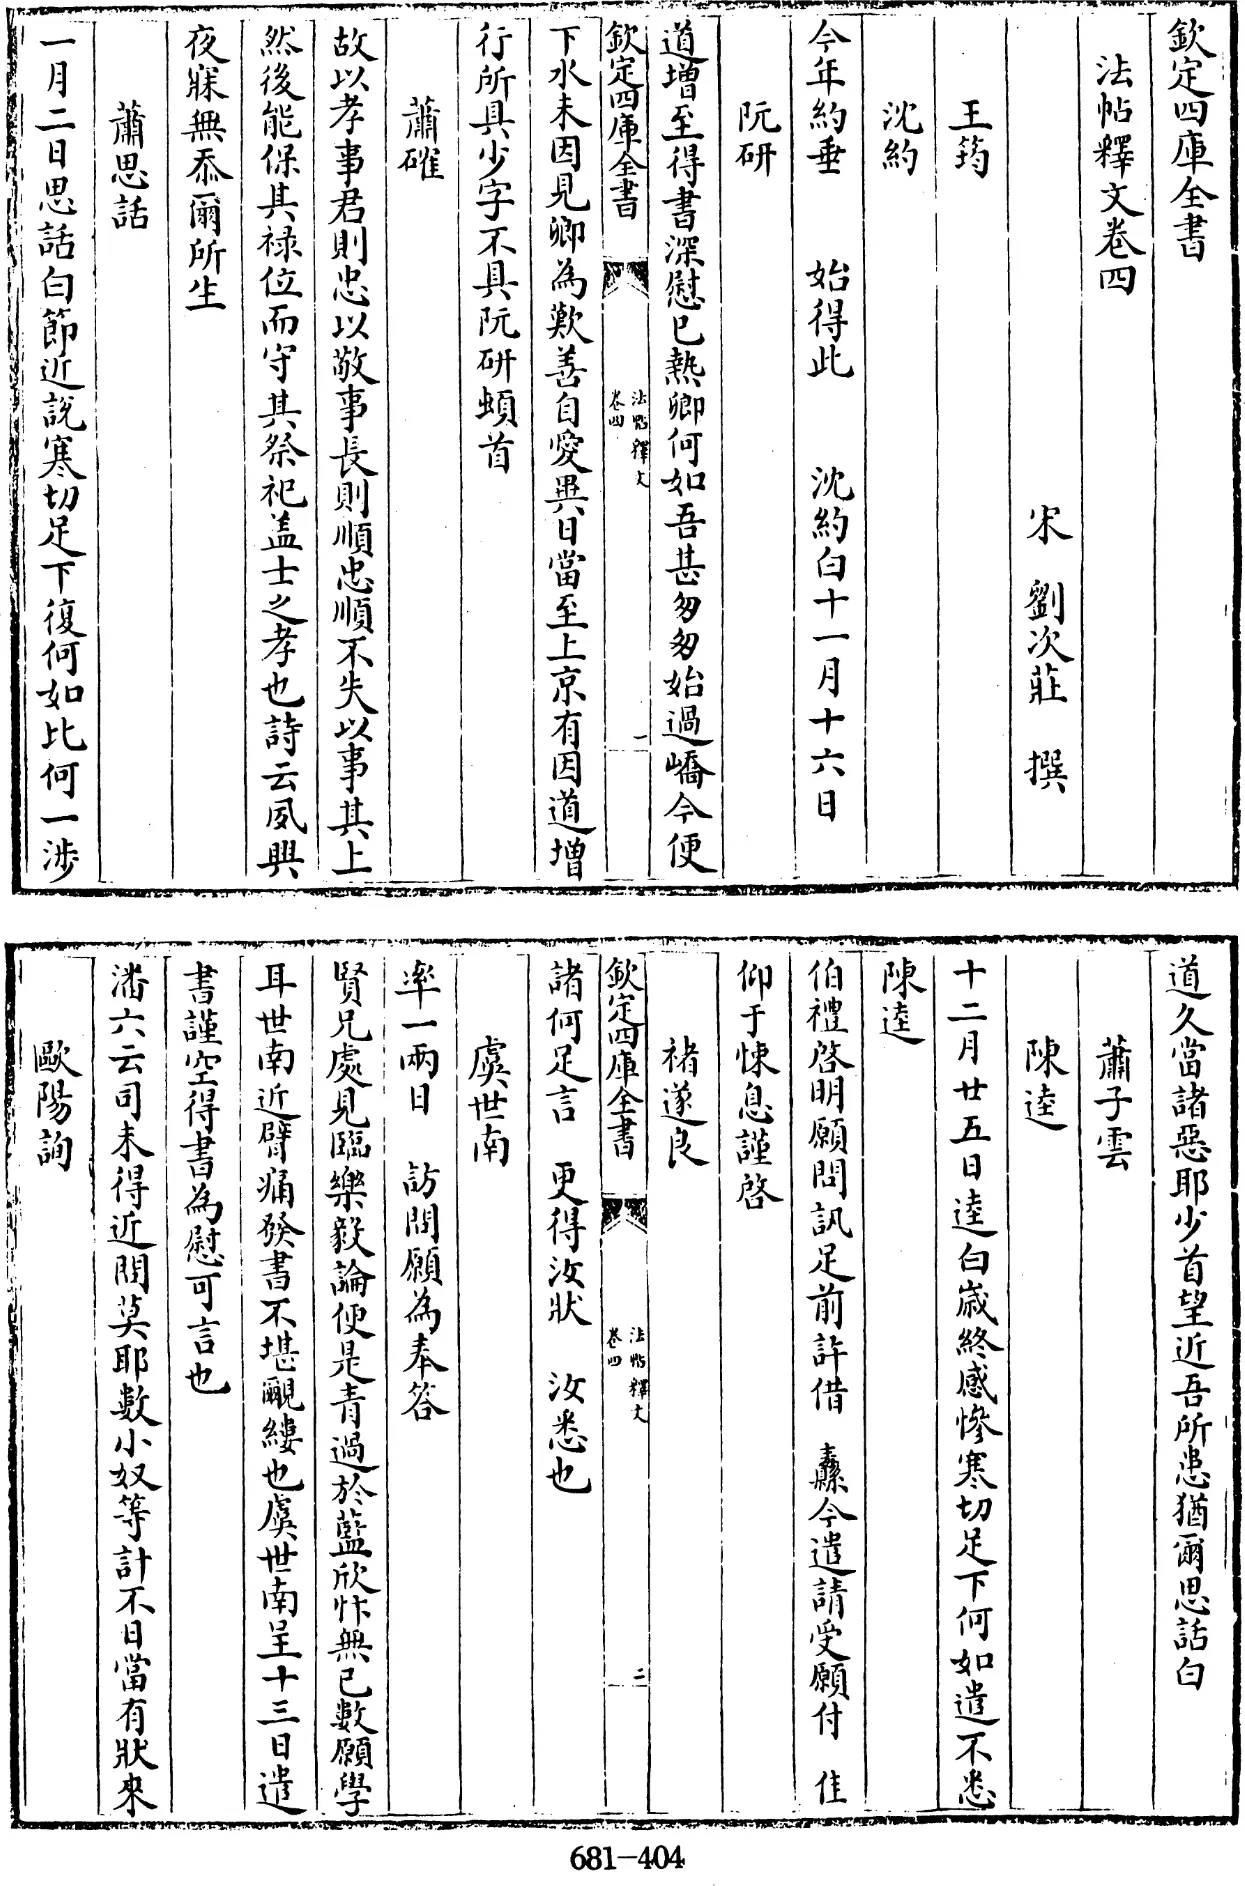 欽定四庫全書
法帖釋文卷四
宋　劉次莊　撰
王筠
沈約
今年約垂　始得此　沈約白十一月十六日
阮研
道增至得書深慰已熱卿何如吾甚匆匆始過嶠今便
欽定四庫全書
法帖釋文
卷四
一
下水未因見卿為歎善自愛異日當至上京有因道增
行所具少字不具阮研頓首
蕭確
故以孝事君則忠以敬事長則順忠順不失以事其上
然後能保其祿位而守其祭祀盖士之孝也詩云夙興
夜寐無忝爾所生
蕭思話
一月二日思話白節近說寒切足下復何如比何一涉
道久當諸惡耶少首望近吾所患猶爾思話白
蕭子雲
陳逵
十二月廿五日逵白歲終感慘寒切足下何如遣不悉
陳逵
伯禮啓明願問訊足前許借　纛今遣請受願付　佳
仰于悚息謹啓
褚遂良
欽定四庫全書
法帖釋文
卷四
二
諸何足言　更得汝狀　汝悉也
虞世南
率一兩日　訪問願為奉答
賢兄處見臨樂毅論便是青過於藍欣忭無已數願學
耳世南近臂痛發書不堪覼縷也虞世南呈十三日遣
書謹空得書為慰可言也
潘六云司未得近問莫耶數小奴等計不日當有狀來
歐陽詢
681-404